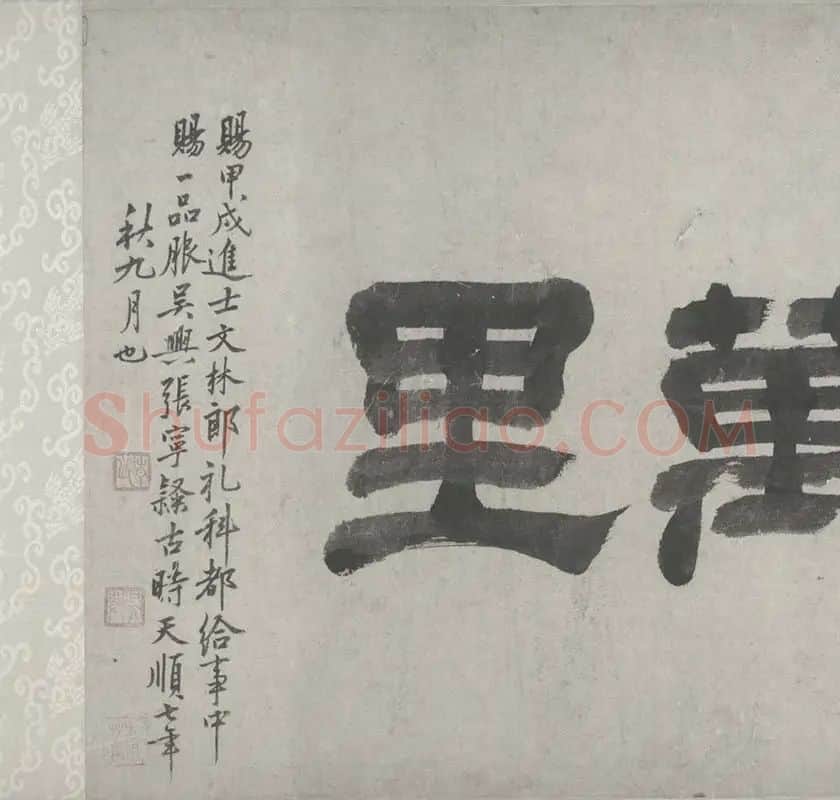 萬里
賜甲戌進士文林郎礼科都給事中
賜一品服吳興張寧隸古時天順七年
秋九月也
Shufaziliao.COM